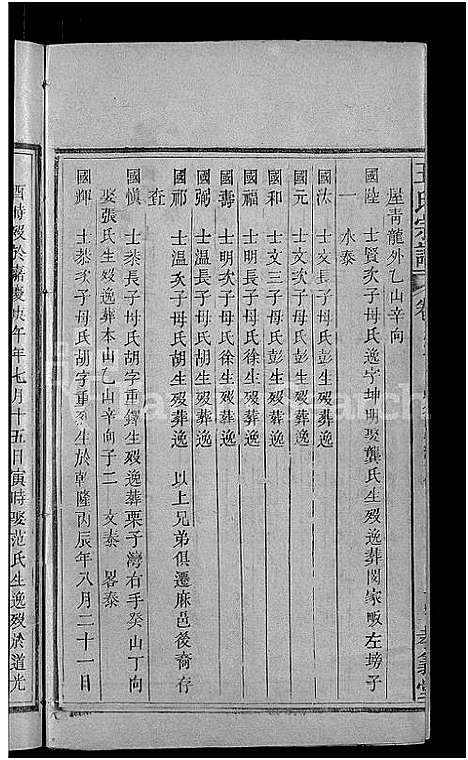 王氏宗譜 卷
屋青龍外乙山辛向
國陸 士賢次子母氏逸字坤明娶龔氏生歿逸葬閔家畈左塝子
一 永泰
國汰 士文長子母氏彭生歿葬逸
國元 士文次子母氏彭生歿葬逸
國和 士文三子母氏彭生歿葬逸
國福 士明長子母氏徐生歿葬逸
國壽 士明次子母氏徐生歿葬逸
國弼 士溫長子母氏胡生歿葬逸
國祁 士溫次子母氏胡生歿葬逸 以上兄弟俱遷麻邑後裔存
查
國慎 士泰長子母氏胡字重鐸生歿逸葬栗子灣右手癸山丁向
娶張氏生歿逸葬本山乙山辛向子二 文泰 畧泰
國輝 士泰次子母氏胡字重 生於乾隆丙辰年八月二十一日
酉時歿於嘉慶 午年七月十五日寅時娶范氏生逸歿於道光